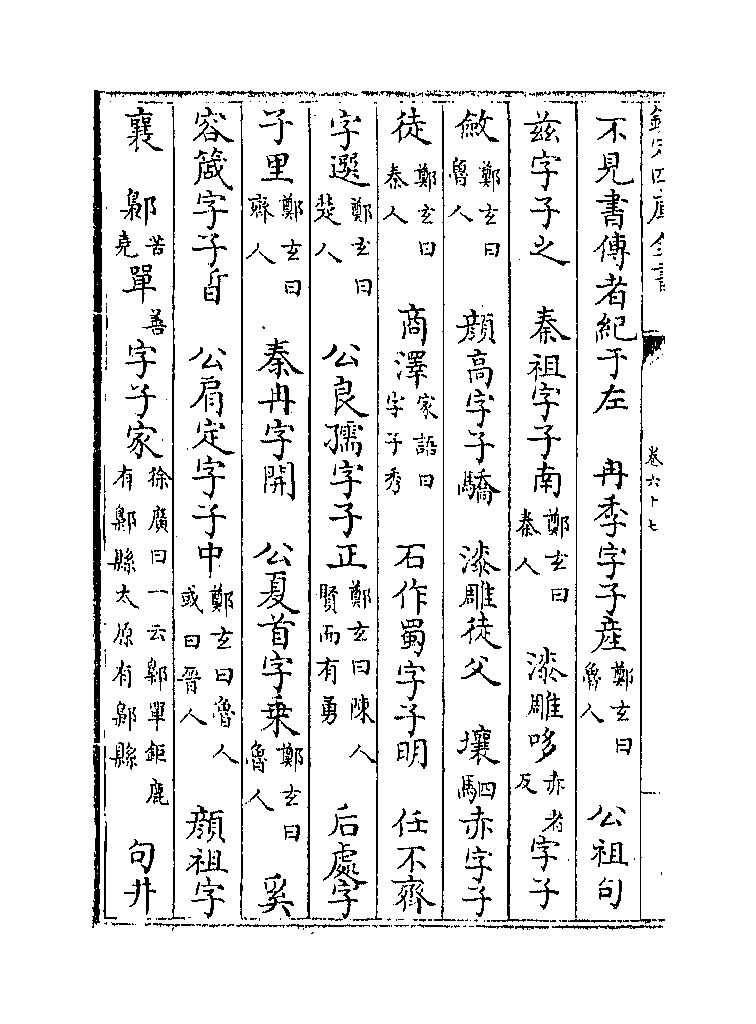 欽定四庫全書　卷六十七
不見書傳者紀于左　冉季字子産鄭玄曰魯人　公祖句
兹字子之　秦祖字子南鄭玄曰秦人　漆雕哆赤者反字子
斂鄭玄曰魯人　顔高字子驕　漆雕徒父　壤駟赤字子
徒鄭玄曰秦人　商澤家語曰字子秀　石作蜀字子明　任不齊
字選鄭玄曰楚人　公良孺字子正鄭玄曰陳人賢而有勇　后處字
子里鄭玄曰齊人　秦冉字開　公夏首字乗鄭玄曰魯人　奚
容箴字子晳　公肩定字子中鄭玄曰魯人或曰晋人　顔祖字
襄　鄡苦堯單善字子家徐廣曰一云鄡單鉅鹿有鄡縣太原有鄔縣　句井